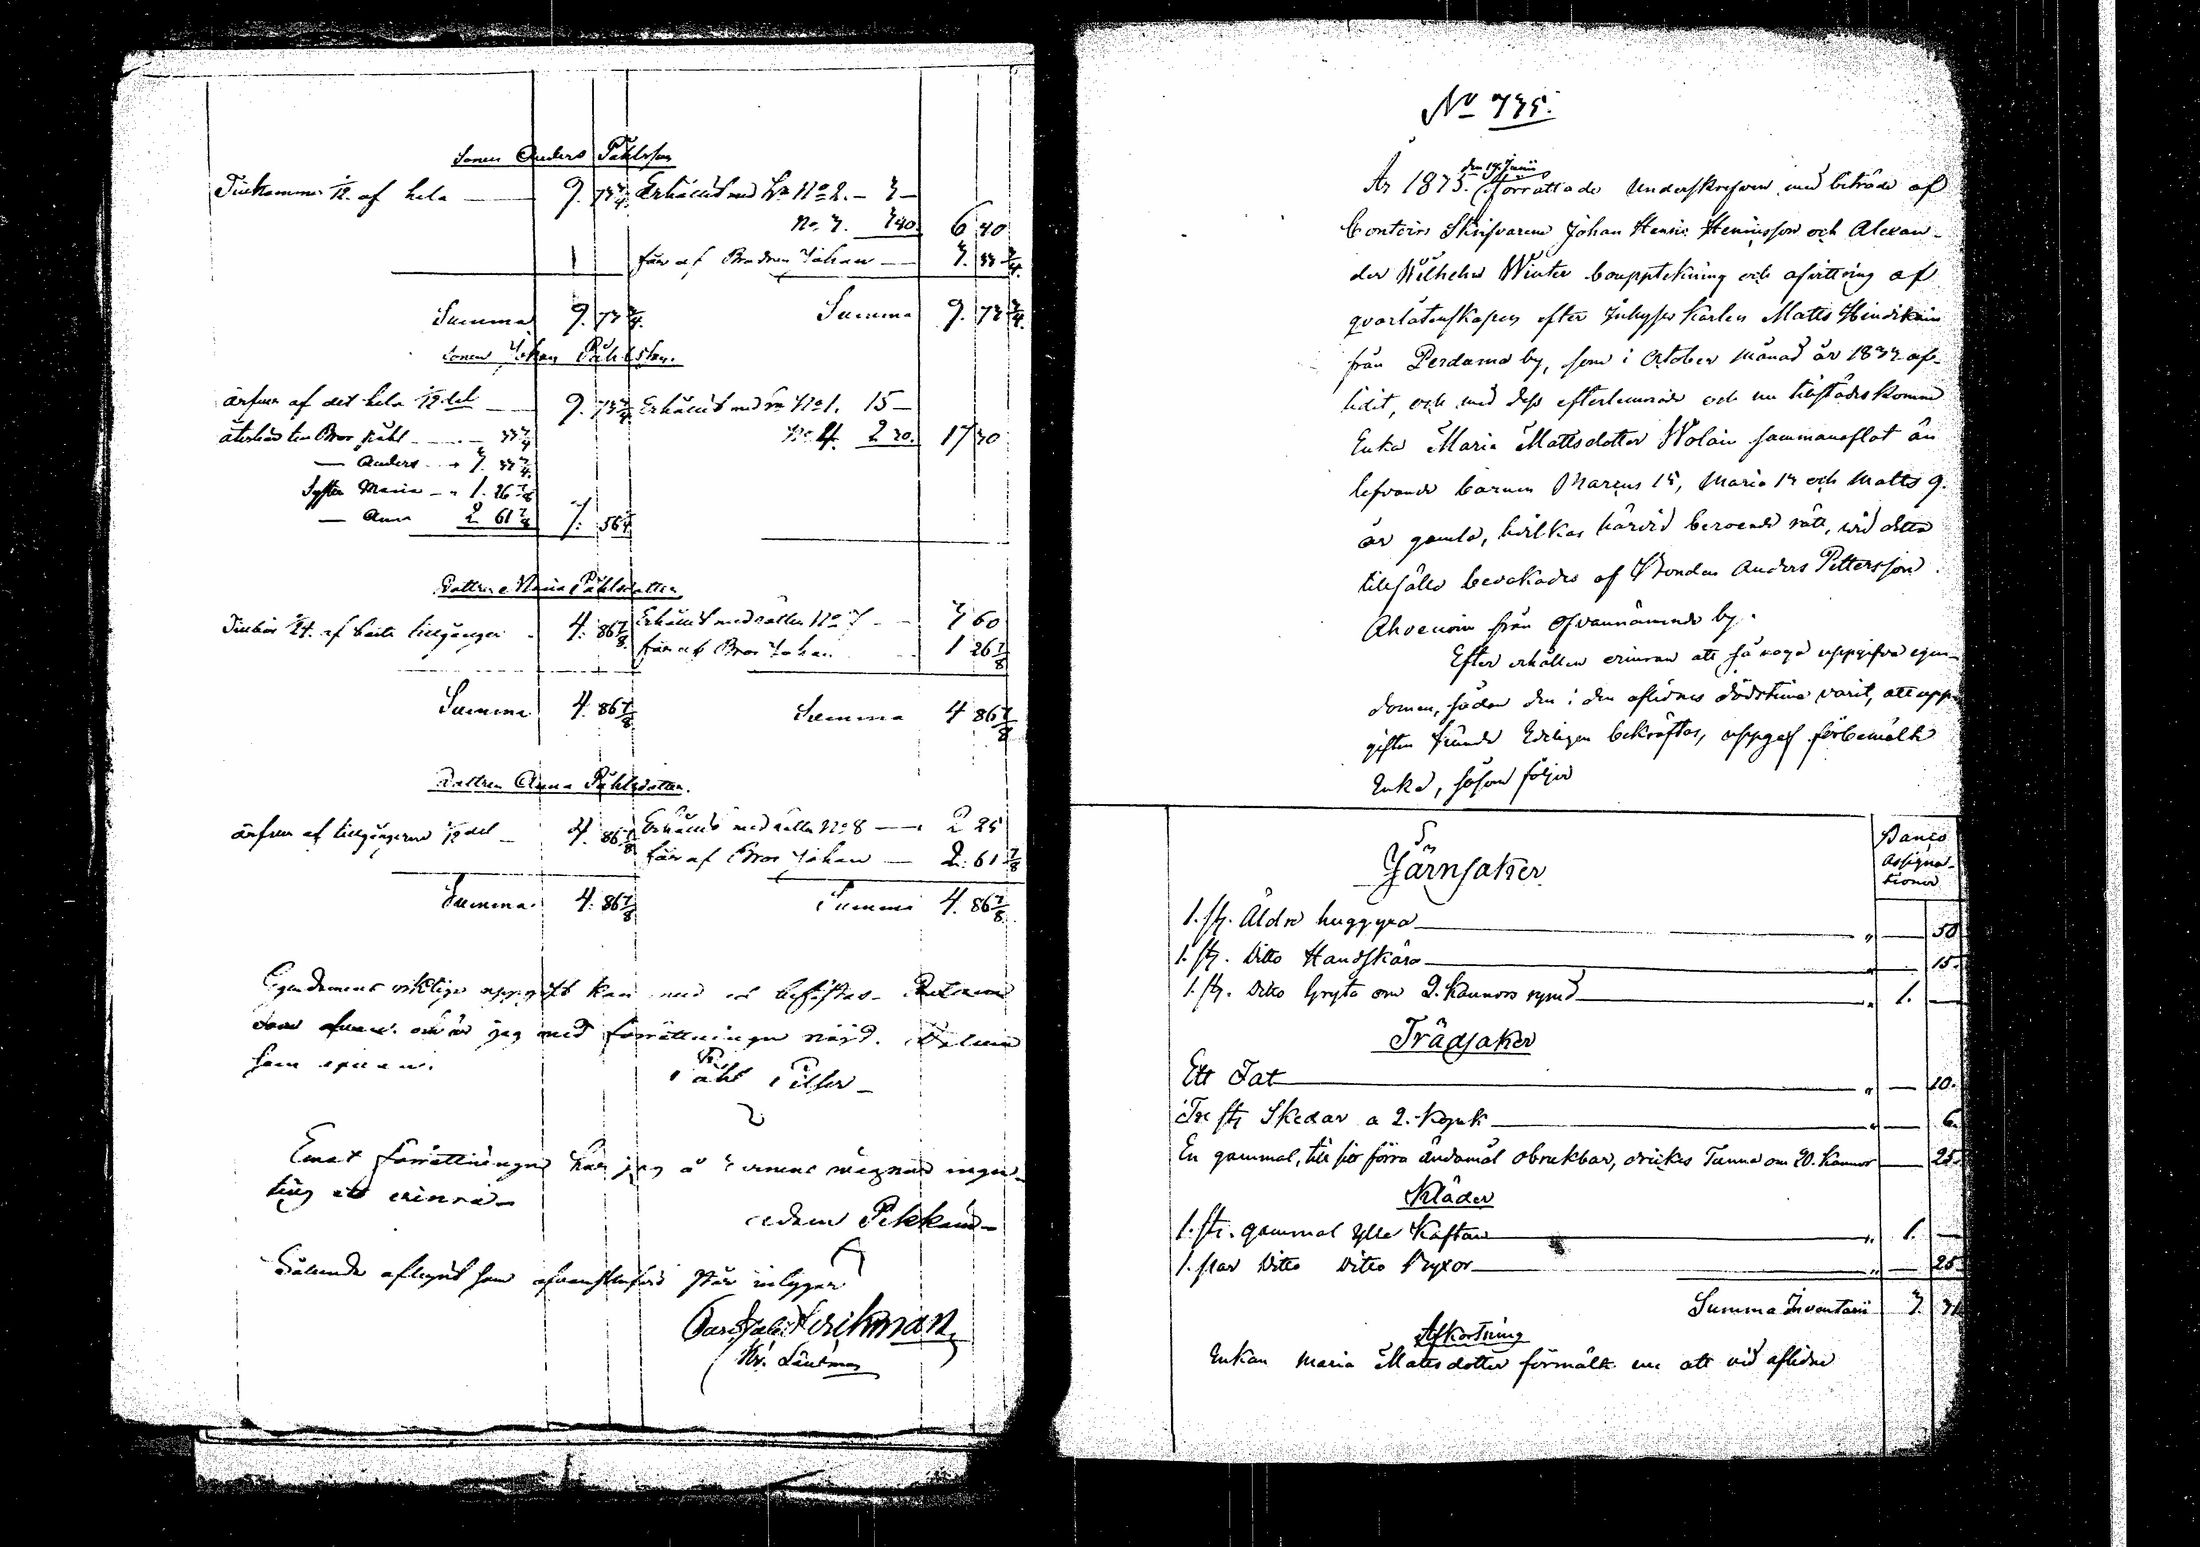 Sonen Anders Påhlsson
Tillkommer 1/12 af hela — 9. 73 3/4 Erhållit med No 2. — 3 —
No 7. 3 40. 6 40
får af Brodren Johan — 3. 33 3/4
Summa 9. 73 3/4 Summa 9. 73 3/4
Sonen Johan Påhlsson.
ärfver af det hela 1/12 del — 9. 73 3/4 Erhållit med No 1. 15 —
återbär till Bror Påhl — 33 3/4 No 4. 2 30. 17 30
— Anders — 3. 33 3/4
Syster Maria — 1. 26 7/8
— Anna 2 61 7/8 7. 56 1/4
Dottren Maria Påhlsdotter
Tillhör 1/24 af hela tillgången 4. 86 7/8 Erhållit med lotten No 7 — 3 60
får af Bror Johan 1 26 7/8
Summa 4. 86 7/8 Summa 4 86 7/8
Dottren Anna Påhlsdotter.
ärfver af tillgångarne del — 4. 86 7/8 Erhållit med lotten No 8 — 2 25
får af Bror Johan — 2. 61 7/8
Summa 4. 86 7/8 Summa 4. 86 7/8
Egendomens riktiga uppgift kan med ed befästas
jag med förrättningen nöjd.
som ofvan.
Påhl
Emot förrättningen har jag å vägnar ingen-
ting att erinra —
Adam Pekkain —
Sålunda aflupit som ofvanskrifvit står intygar
Carl Jakob
Kr. Länsman
No 735.
År 1835. den 17 Junii förrättade Underskrefven med biträde af
Contoirs Skrifvarene Johan Henric Henricsson och Alexan-
der Wilhelm Winter bouppteckning och afvittring af
qvarlåtenskapen efter Inhyses Karlen Matts Hindrikain
från Perdama by, som i October månad år 1833 af-
lidit, och med dess efterlemnade och nu tillstädeskomne
Enka Maria Mattsdotter Wolain sammanaflat än
lefvande barnen Marcus 15, Maria 13 och Matts 9.
år gamla, hvilkas härvid beroende rätt, wid detta
tillfälle bevakades af Bonden Anders Pettersson
Ahvenain från ofvannämnde by.
Efter erhållen erinran att så noga uppgifva egen-
domen, sådan den i den aflidnes dödstima varit, att upp-
giften kunde Edeligen bekräftas, uppgaf förbemälte
Enka, såsom följer
Banco
Assigna-
tioner
Järnsaker
1. st. Äldre huggyxa — " — 50
1. st. Ditto Handskära — " — 15.
1. st. Ditto Gryta om 2. Kannors rymd — " 1. —
Trädsaker
Ett Fat — " — 10.
Tre st Skedar a 2. Kopek — " — 6.
En gammal, till sitt förra ändamål obrukbar, drickes Tunna om 20. Kannor — 25.
Kläder
1. st. gammal Ylle Kaftan — " 1. —
1. par Ditto Ditto Byxor — " — 25
Summa Inventarii 3. 31
Afkortning
Enkan Maria Mattsdotter förmälte nu att vid aflidne